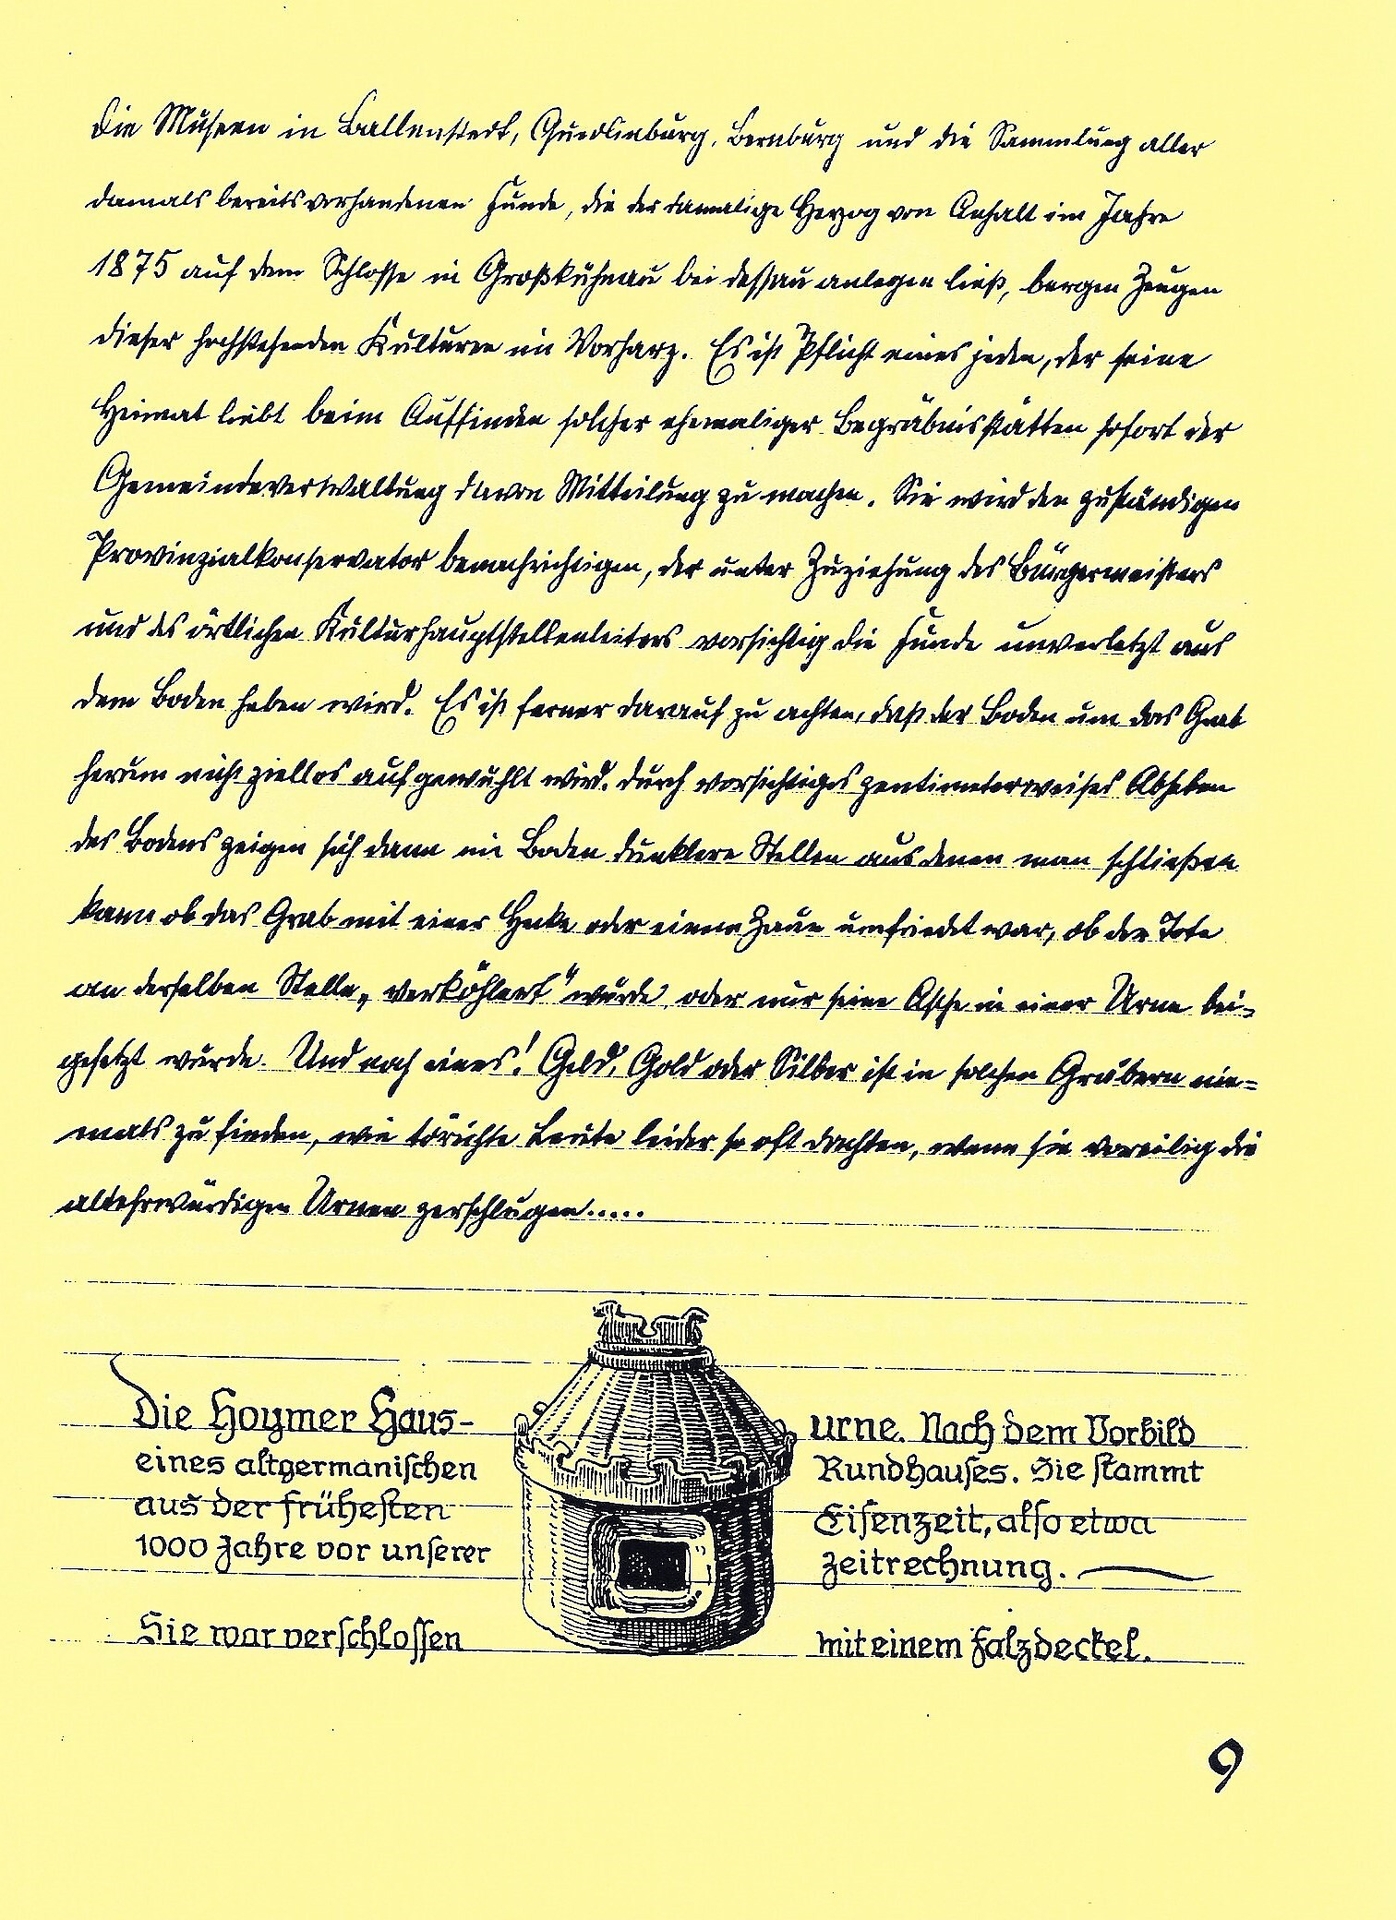 Die Museen in Ballenstedt, Quedlinburg, Bernburg und die Sammlung aller
damals bereits vorhandenen Funde, die der damalige Herzog von Anhalt im Jahre
1875 auf dem Schlosse in Großkühnau bei Dessau anlegen ließ, bergen Zeugen
dieser hochstehenden Kulturen im Vorharz. Es ist Pflicht eines jeden, der seine
Heimat liebt beim Auffinden solcher ehemaliger Begräbnisstätten sofort der
Gemeindeverwaltung davon Mitteilung zu machen. Sie wird den zuständigen
Provinzialkonservator benachrichtigen, der unter Zuziehung des Bürgermeisters
und des örtlichen Kulturhauptstellenleiters vorsichtig die Funde unverletzt aus
dem Boden heben wird. Es ist ferner darauf zu achten, daß der Boden um das Grab
herum nicht ziellos aufgewühlt wird. Durch vorsichtiges zentimeterweises Abheben
des Bodens zeigen sich dann im Boden dunklere Stellen aus denen man schließen
kann ob das Grab mit einer Hecke oder einem Zaun umfriedet war, ob der Tote
an derselben Stelle „verköhlert" wurde oder nur seine Asche in einer Urne bei-
gesetzt wurde. Und noch eines! Geld, Gold oder Silber ist in solchen Gräbern nie-
mals zu finden, wie törichte Leute leider so oft dachten, wenn sie voreilig die
altehrwürdigen Urnen zerschlugen.....
Die Hoymer Haus- urne. Nach dem Vorbild
eines altgermanischen Rundhauses. Sie stammt
aus der frühesten Eisenzeit, also etwa
1000 Jahre vor unserer Zeitrechnung.
Sie war verschlossen mit einem Falzdeckel.
9